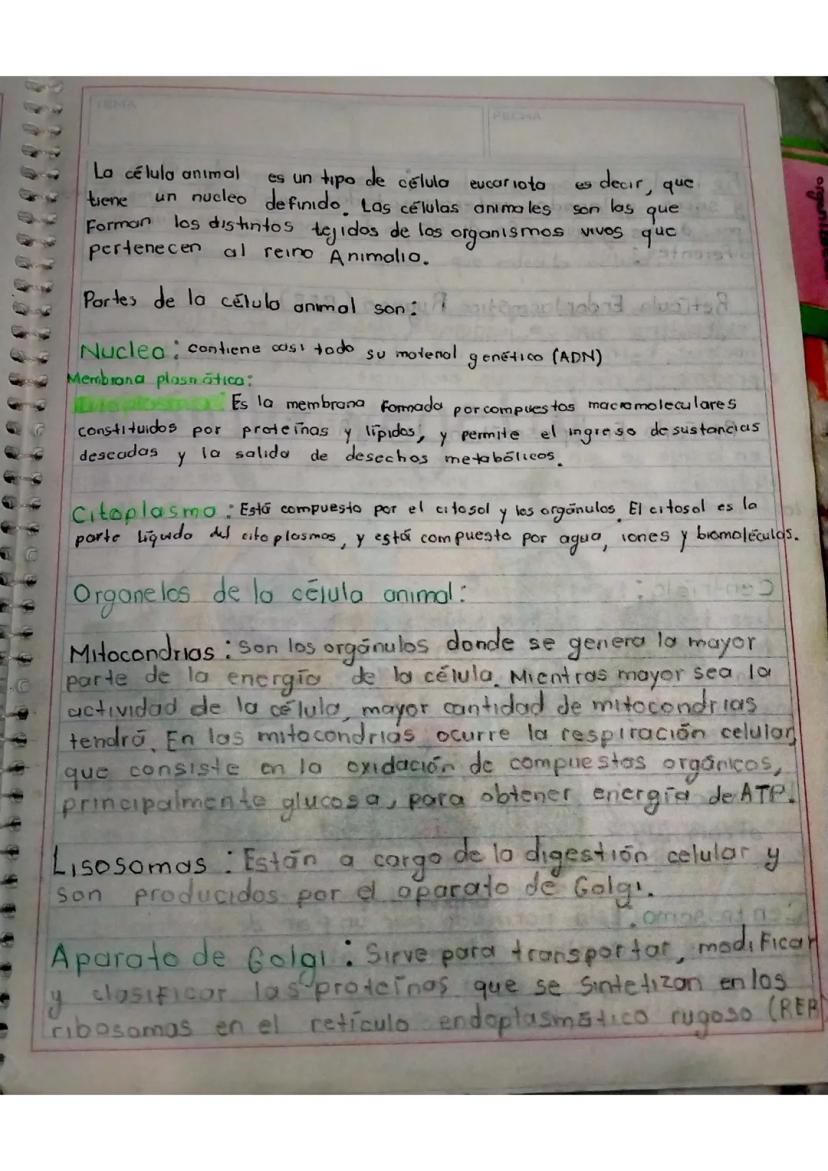 TEMA
FECHA
La célula animal es un tipo de célula eucariota es decir, que
tiene un nucleo definido. Las células animales son las que
Forman los distintos tejidos de los organismos vivos que
pertenecen al reino Animalia.
Partes de la célula animal son:
Nucleo: contiene casi todo su material genético (ADN)
Membrana plasmática:
Es la membrana formada por compuestos macromoleculares
constituidos por proteínas y lípidos, y permite el ingreso de sustancias
deseadas y la salida de desechos metabólicos.
Citoplasma: Está compuesto por el citosol y los orgánulos. El citosol es la
parte líquida del citoplasmas, y está compuesto por agua, iones y biomoléculas.
Organelos de la célula animal:
Mitocondrias: Son los orgánulos donde se genera la mayor
parte de la energía de la célula. Mientras mayor sea la
actividad de la célula, mayor cantidad de mitocondrias
tendrá. En las mitocondrias ocurre la respiración celular,
que consiste en la oxidación de compuestos orgánicos,
principalmente glucosa, para obtener energía de ATP.
Lisosomas: Están a cargo de la digestión celular y
son producidos por el aparato de Golgi.
Aparato de Golgi: Sirve para transportar, modificar
y clasificar las proteínas que se sintetizan en los
ribosomas en el retículo endoplasmático rugoso (RER